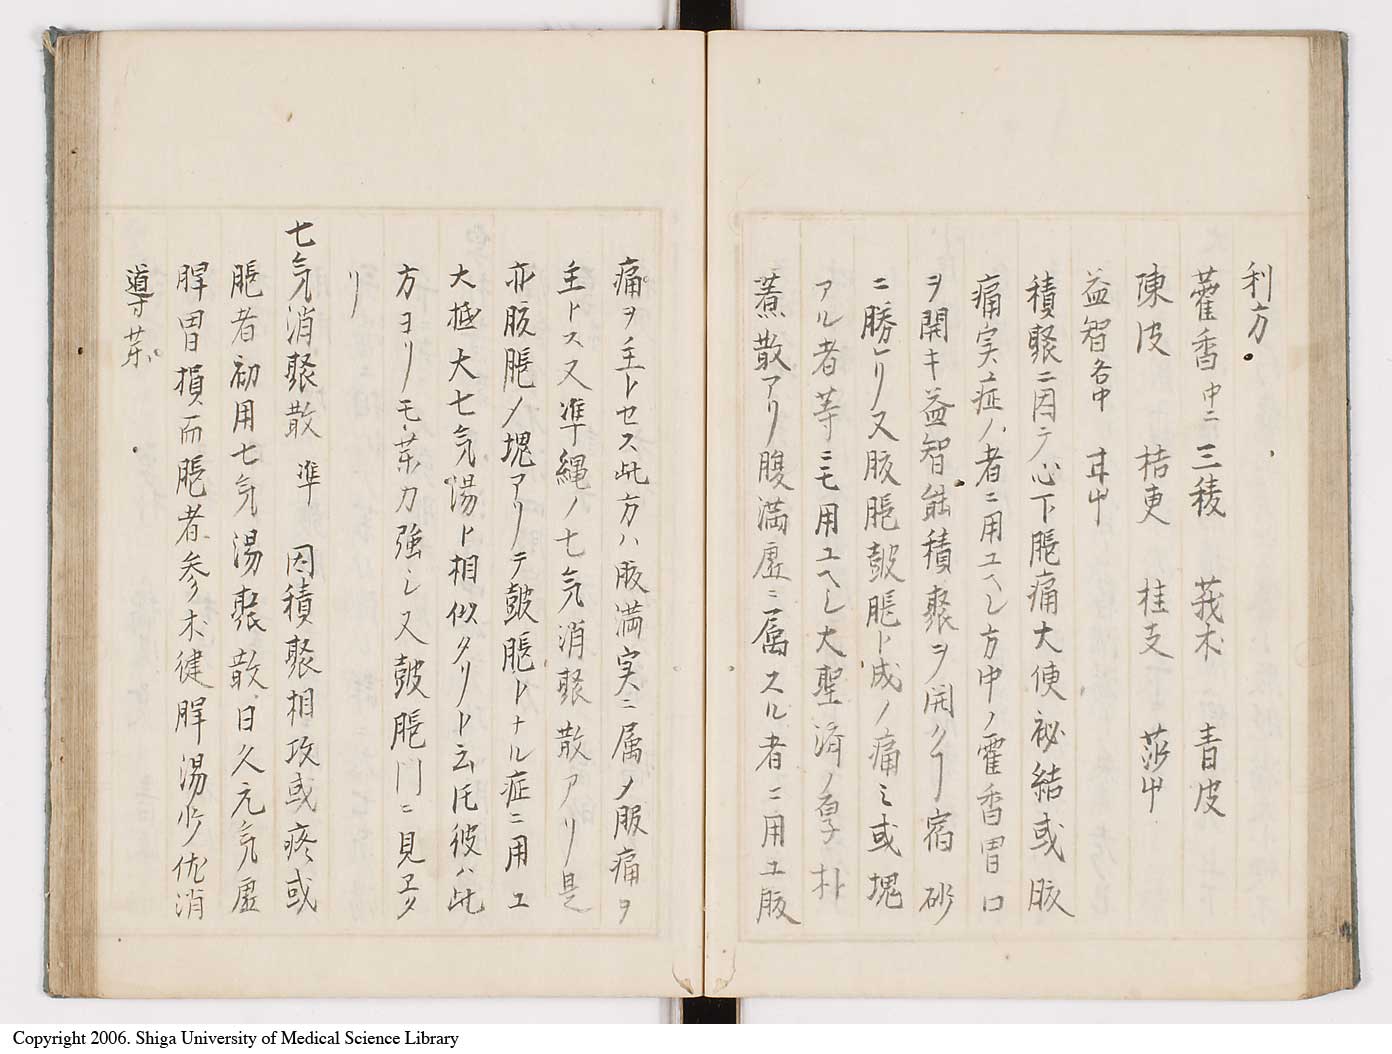 利方
藿香中二 三稜 莪朮 青皮
陳皮 桔更 桂支 莎艸
益智各中 甘艸
積聚ニ因テ心下脹痛大便祕結或腹
痛実症ノ者ニ用ユヘシ方中ノ藿香胃口
ヲ開キ益智能積聚ヲ開クヿ宿砂
ニ勝レリ又腹脹皷脹ト成ノ痛ミ或塊
アル者等ニモ用ユヘシ大聖済ノ厚朴
煮散アリ腹満虚ニ属スル者ニ用ユ腹
痛ヲ主トセス此方ハ腹満実ニ属メ腹痛ヲ
主トス又準縄ノ七気消聚散アリ是
亦腹脹メ塊アリテ皷脹トナル症ニ用ユ
大抵大七気湯ト相似タリト云圧彼ハ此
方ヨリモ薬力強シ又皷脹門ニ見ヱタ
リ
七気消聚散 準 因積聚相攻或疼或
脹者初用七気湯聚散日久元気虚
脾胃損而脹者参朮健脾湯少佐消
導薬
Copyright 2006. Shiga University of Medical Science Library